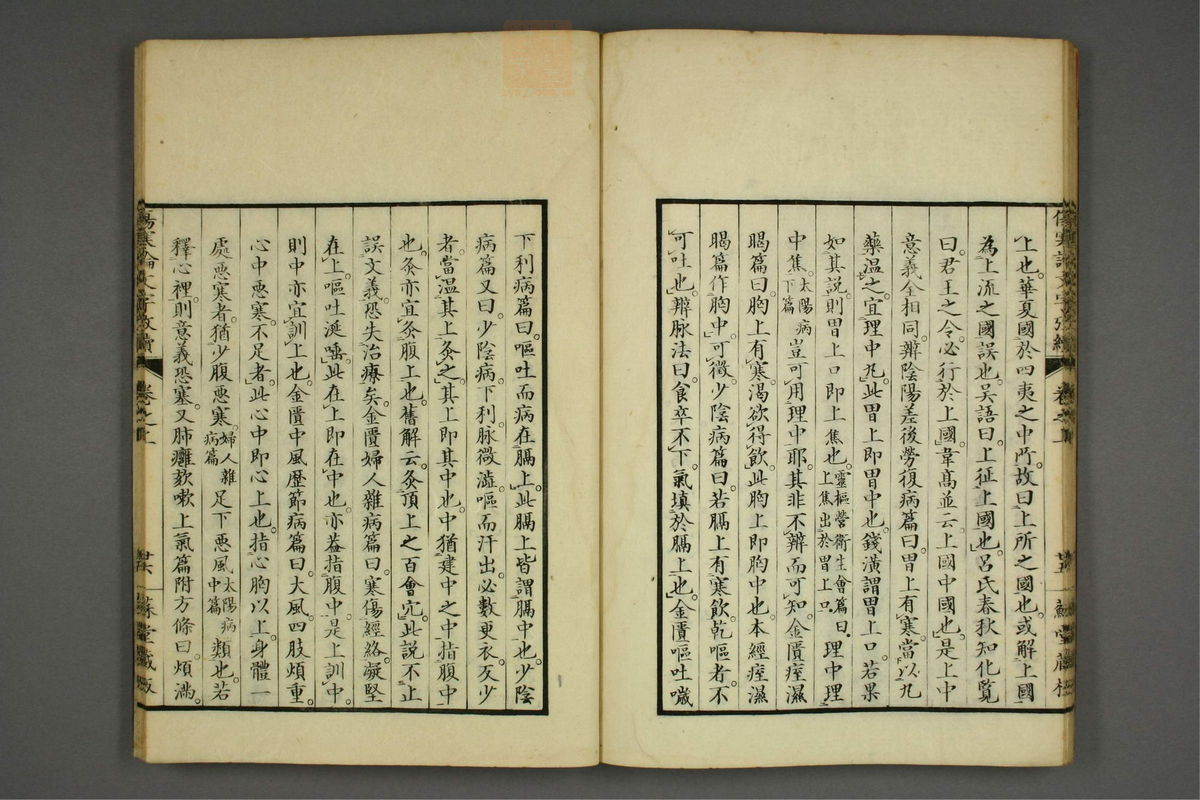 上也華夏國於四夷之中門故曰上所之國也或解上國
為上流之國誤也吳語曰上征上國也呂氏春秋知化覽
曰君王之令必行於上國韋高並云上國中國也是上中
意義全相同辨陰陽差後勞復病篇曰胃上有寒當以丸
藥溫之宜理中丸此胃上即胃中也錢潢謂胃上口若果
如其說則胃上口即上焦也靈樞營衛生會篇曰上焦出於胃上口理中理
中焦太陽病下篇豈可用理中耶其非不辨而可知金匱痙濕
暍篇曰胸上有寒渴欲得飲此胸上即胸中也本經痙濕
暍篇作胸中可徵少陰病篇曰若膈上有寒飲乾嘔者不
可吐也辨脉法曰食卒不下氣填於膈上也金匱嘔吐噦
下利病篇曰嘔吐而病在膈上此膈上皆謂膈中也少陰
病篇又曰少陰病下利脉微澁嘔而汗出必數更衣反少
者當溫其上灸之其上即其中也中猶建中之中指腹中
也灸亦宜灸腹上也舊解云灸頂上之百會穴此說不止
誤文義恐失治療矣金匱婦人雜病篇曰寒傷經絡凝堅
在上嘔吐涎唾此在上即在中也亦蓋指腹中是上訓中
則中亦宜訓上也金匱中風歷節病篇曰大風四肢煩重
心中惡寒不足者此心中即心上也指心胸以上身體一
處惡寒者猶少腹惡寒婦人雜病篇足下惡風太陽病中篇類也若
釋心裡則意義恐塞又肺癰欬嗽上氣篇附方條曰煩滿